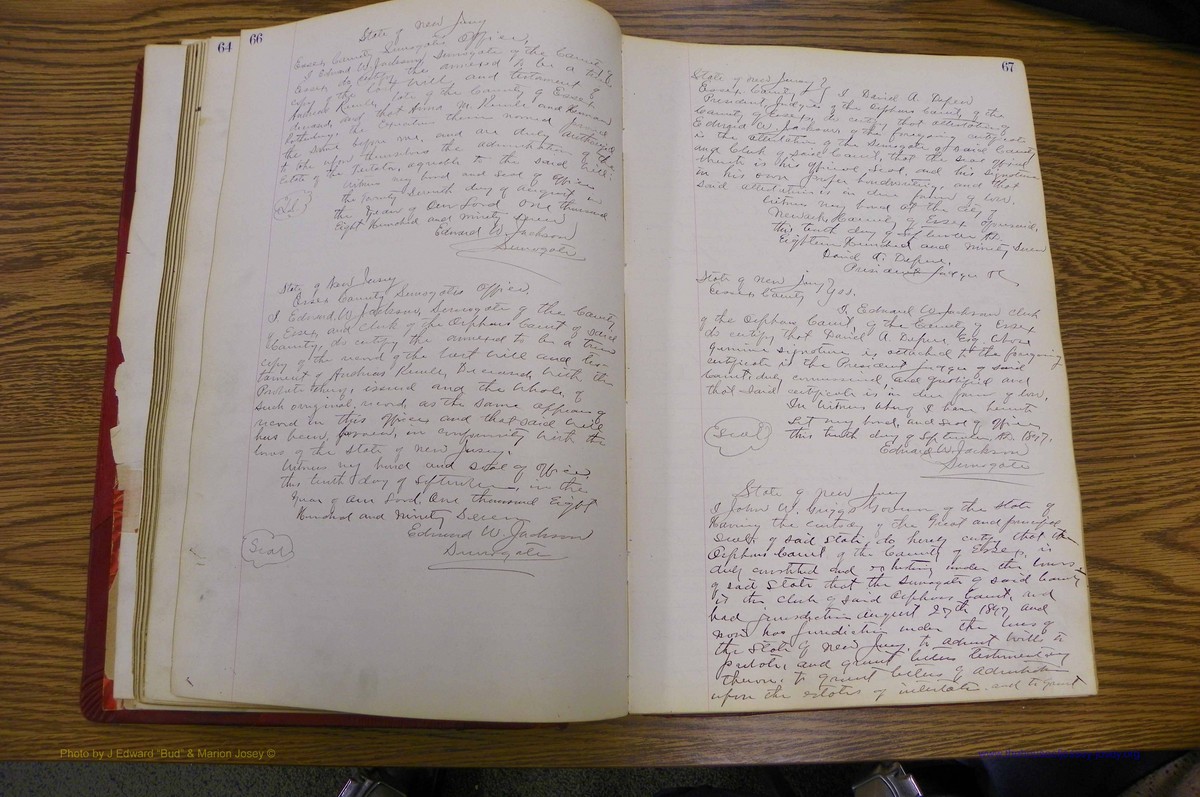 64
66
State of New Jersey
Essex County Surrogates Office,
I Edward W. Jackson, Surrogate of the County
Essex do certify the annexed to be a true
copy of the last will and testament of
Andreas late of the County of Essex
deceased, and that Anna M. and Herman
the Executors therein named proved
the same before me, and are duly authorized
to take upon themselves the administration of the
Estate of the Testator, agreeable to the said Will.
Witness my hand and seal of Office
the twenty seventh day of August in
the Year of Our Lord One thousand
Eight Hundred and Ninety Seven
Edward W. Jackson
Surrogate
State of New Jersey
Essex County Surrogates Office.
I Edward W. Jackson, Surrogate of the County
of Essex and Clerk of the Orphans Court of said
County, do certify the annexed to be a true
copy of the record of the last will and tes-
tament of Andreas Deceased, with the
Probate thereof, issued and the whole of
such original record, as the same appears of
record in this office and that said will
has been proven in conformity with the
laws of the State of New Jersey.
Witness my hand and seal of office,
this tenth day of September, in the
Year of Our Lord, One thousand Eight
Hundred and Ninety Seven
Edward W. Jackson
Surrogate
Seal
67
State of New Jersey
Essex County I David A. Depue
President Judge of the Orphans Court, of the
County of Essex, do certify that attestation of
Edward W. Jackson, of the foregoing certificate
is the attestation of the Surrogate of said County
and Clerk of said Court, that the seal affixed
thereto is his official seal, and his signature
in his own proper handwriting, and that
said attestation is in due form of law.
Witness my hand at the City of
Newark County of Essex aforesaid,
this tenth day of September AD.
Eighteen Hundred and Ninety Seven
David A. Depue,
President Judge
State of New Jersey
Essex County ss.
I, Edward W. Jackson Clerk
of the Orphans Court, of the County of Essex
do certify that David A. Depue Esq. whose
genuine signature is attached to the foregoing
certificate is the President Judge of said
Court, duly commissioned and qualified and
that said certificate is in due form of law.
In Witness Whereof I have hereto
Set my hand, and seal of office
this tenth day of September, AD. 1897.
Edward W. Jackson
Surrogate
Seal
State of New Jersey
I John W. Griggs Governor of the State of
Having the custody of the Great and principal
Seals of said State, do hereby certify, that the
Orphans Court of the County of Essex, is
duly constituted and existing under the laws
of said State that the Surrogate of said County
is the Clerk of said Orphans Court, and
had jurisdiction August 27th 1897 and
now has jurisdiction under the laws of
the State of New Jersey, to admit wills to
probate, and grant letters testamentary
thereon, to grant letters of administration
upon the estates of intestate, and to grant
Photo by J Edward "Bud" & Marion Josey ©